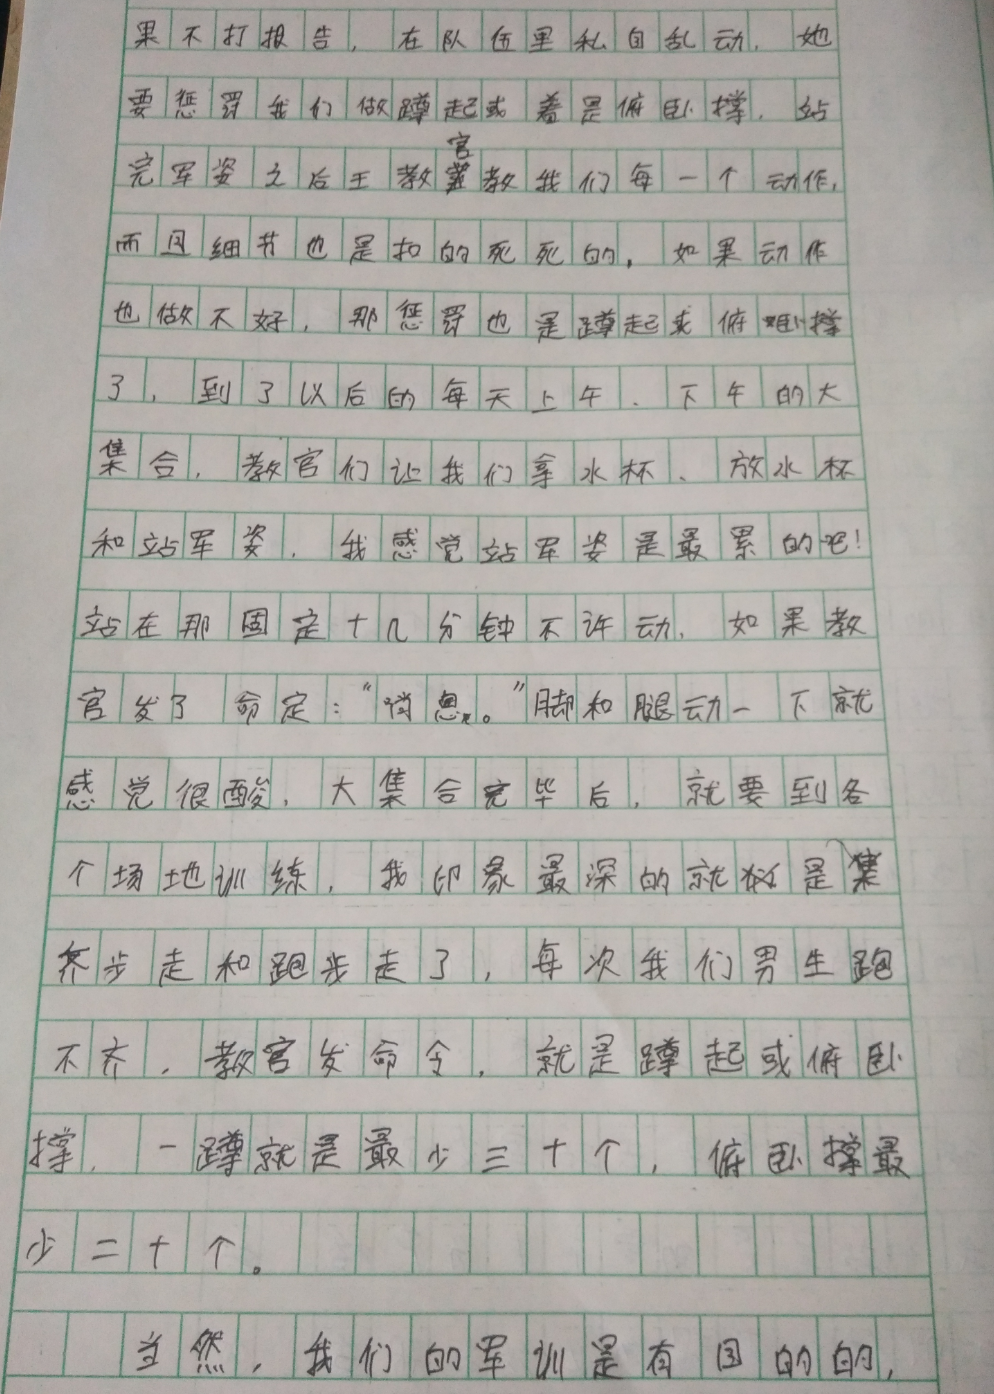 果不打报告，在队伍里私自乱动，她
要惩罚我们做蹲起或着是俯卧撑，站
完军姿之后王教官教我们每一个动作，
而且细节也是扣的死死的，如果动作
也做不好，那惩罚也是蹲起或俯卧撑
了，到了以后的每天上午、下午的大
集合，教官们让我们拿水杯、放水杯
和站军姿，我感觉站军姿是最累的吧！
站在那固定十几分钟不许动，如果教
官发了命定：“稍息。”脚和腿动一下就
感觉很酸，大集合完毕后，就要到各
个场地训练，我印象最深的就是集
齐步走和跑步走了，每次我们男生跑
不齐，教官发命令，就是蹲起或俯卧
撑，一蹲就是最少三十个，俯卧撑最
少二十个。
当然，我们的军训是有目的的，